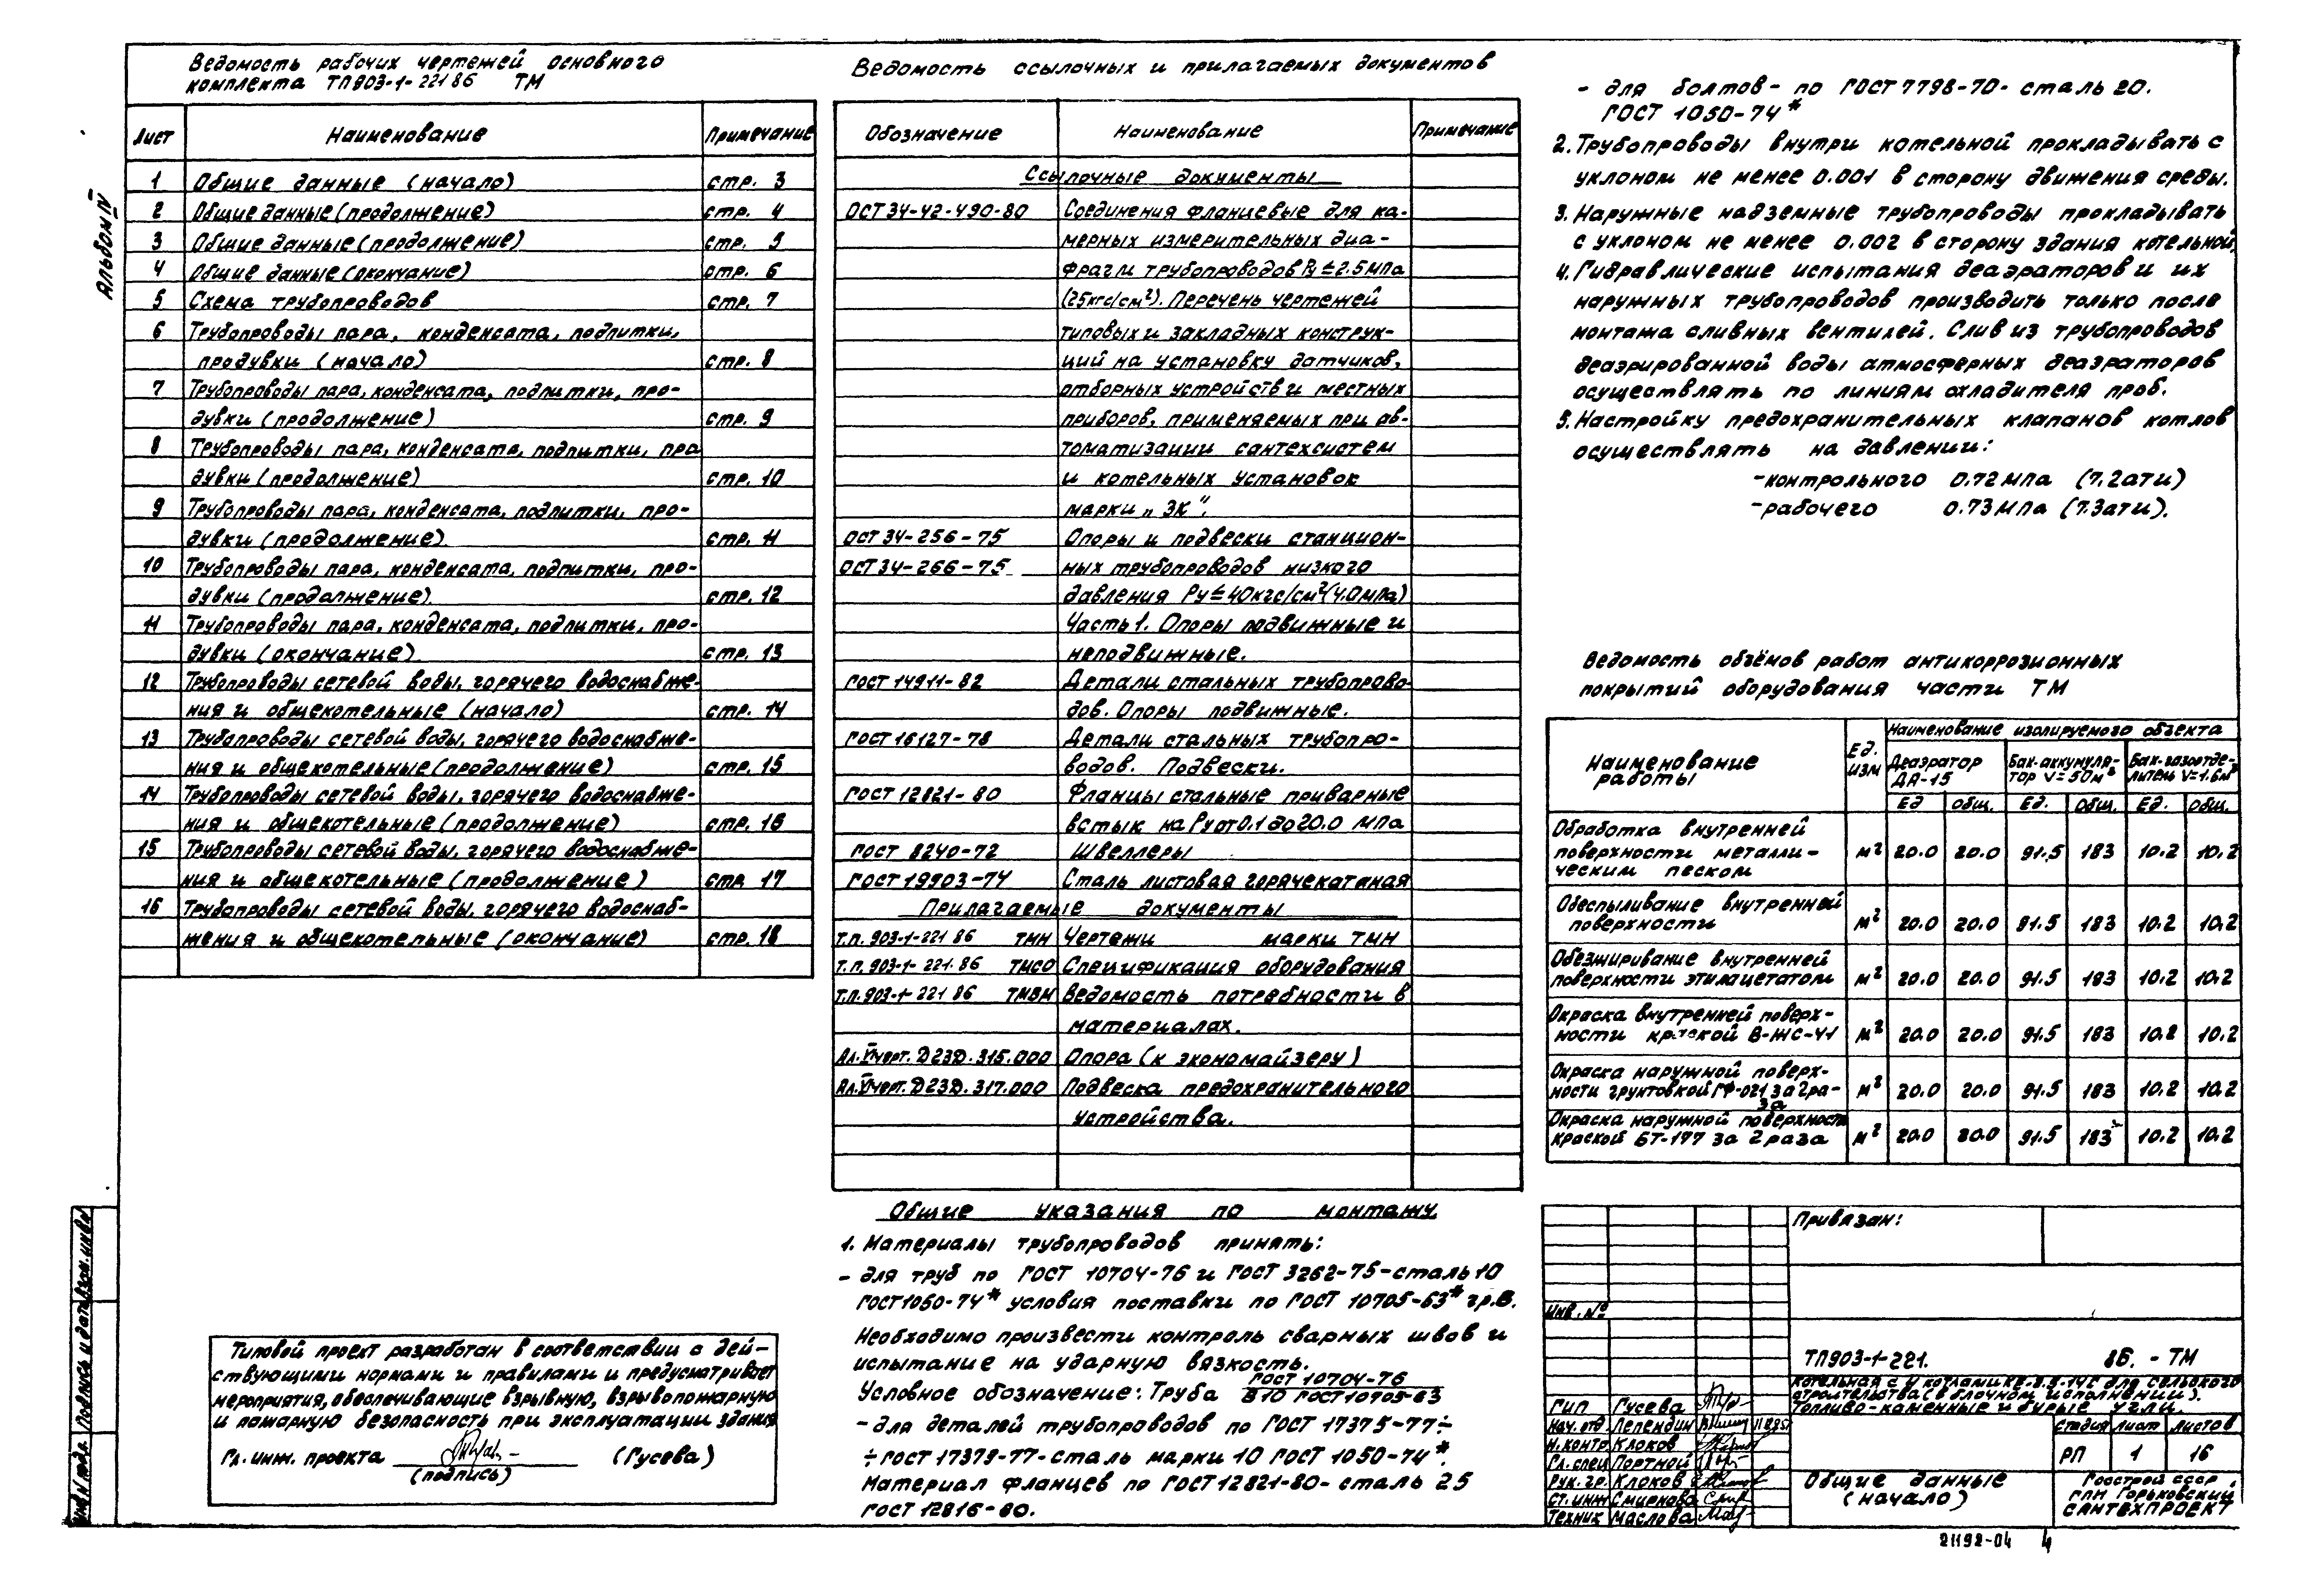 Ведомость рабочих чертежей основного
комплекта ТП903-1-221 86 ТМ
Лист Наименование Примечание
1 Общие данные (начало) стр. 3
2 Общие данные (продолжение) стр. 4
3 Общие данные (продолжение) стр. 5
4 Общие данные (окончание) стр. 6
5 Схема трубопроводов стр. 7
6 Трубопроводы пара, конденсата, подпитки,
продувки (начало) стр. 8
7 Трубопроводы пара, конденсата, подпитки, про-
дувки (продолжение) стр. 9
8 Трубопроводы пара, конденсата, подпитки, про
дувки (продолжение) стр. 10
9 Трубопроводы пара, конденсата, подпитки, про-
дувки (продолжение) стр. 11
10 Трубопроводы пара, конденсата, подпитки, про-
дувки (продолжение). стр. 12
11 Трубопроводы пара, конденсата, подпитки, про-
дувки (окончание) стр. 13
12 Трубопроводы сетевой воды, горячего водоснабже-
ния и общекотельные (начало) стр. 14
13 Трубопроводы сетевой воды, горячего водоснабже-
ния и общекотельные (продолжение) стр. 15
14 Трубопроводы сетевой воды, горячего водоснабже-
ния и общекотельные (продолжение) стр. 16
15 Трубопроводы сетевой воды, горячего водоснабже-
ния и общекотельные (продолжение) стр 17
16 Трубопроводы сетевой воды, горячего водоснаб-
жения и общекотельные (окончание) стр. 18
Альбом IV
Типовой проект разработан в соответствии с дей-
ствующими нормами и правилами и предусматривает
мероприятия, обеспечивающие взрывную, взрывопожарную
и пожарную безопасность при эксплуатации здания
Гл. инж. проекта (Гусева)
(подпись)
Инв N подл. Подпись и дата Взам. инв N
Ведомость ссылочных и прилагаемых документов
Обозначение Наименование Примечание
Ссылочные документы
ОСТ 34-42-490-80 Соединения фланцевые для ка-
мерных измерительных диа-
фрагм трубопроводов Ру ≤ 2.5 МПа
(25кгс/см²). Перечень чертежей
типовых и закладных конструк-
ций на установку датчиков,
отборных устройств и местных
приборов, применяемых при ав-
томатизации сантехсистем
и котельных установок
марки „ЗК".
ОСТ 34-256-75 Опоры и подвески станцион-
ОСТ 34-266-75 ных трубопроводов низкого
давления Ру ≤ 40кгс/см² (4.0мпа)
Часть 1. Опоры подвижные и
неподвижные.
ГОСТ 14911-82 Детали стальных трубопрово-
дов. Опоры подвижные.
ГОСТ 16127-78 Детали стальных трубопро-
водов. Подвески.
ГОСТ 12821-80 Фланцы стальные приварные
встык на Ру от 0.1 до 20.0 МПа
ГОСТ 8240-72 Швеллеры
ГОСТ 19903-74 Сталь листовая горячекатаная
Прилагаемые документы
Т.п. 903-1-221 86 ТМН Чертежи марки ТМН
Т.п. 903-1-221.86 ТМСО Спецификация оборудования
Т.п. 903-1-221 86 ТМВМ Ведомость потребности в
материалах.
черт. Д23Д.315.000 Опора (к экономайзеру)
черт. Д23Д.317.000 Подвеска предохранительного
устройства.
Общие указания по монтажу
1. Материалы трубопроводов принять:
- для труб по ГОСТ 10704-76 и ГОСТ 3262-75-сталь 10
ГОСТ 1050-74* условия поставки по ГОСТ 10705-63* гр.В.
Необходимо произвести контроль сварных швов и
испытание на ударную вязкость.
Условное обозначение: Труба ГОСТ 10704-76
В10 ГОСТ 10705-63
- для деталей трубопроводов по ГОСТ 17375-77÷
÷ГОСТ 17379-77-сталь марки 10 ГОСТ 1050-74*.
Материал фланцев по ГОСТ 12821-80- сталь 25
ГОСТ 12816-80.
- для болтов - по ГОСТ 7798-70- сталь 20.
ГОСТ 1050-74*
2. Трубопроводы внутри котельной прокладывать с
уклоном не менее 0.001 в сторону движения среды.
3. Наружные надземные трубопроводы прокладывать
с уклоном не менее 0.002 в сторону здания котельной.
4. Гидравлические испытания деаэраторов и их
наружных трубопроводов производить только после
монтажа сливных вентилей. Слив из трубопроводов
деаэрированной воды атмосферных деаэраторов
осуществлять по линиям охладителя проб.
5. Настройку предохранительных клапанов котлов
осуществлять на давлении:
-контрольного 0.72 мпа (7.2ати)
-рабочего 0.73 мпа (7.3ати).
Ведомость объёмов работ антикоррозионных
покрытий оборудования части ТМ
Наименование работы Ед. изм Наименование изолируемого объекта
Деаэратор ДА-15 Бак-аккумуля-тор V=50м³ Бак-газоотде-литель V=1.6м³
Ед Общ. Ед. Общ. Ед. Общ.
Обработка внутренней
поверхности металли- м² 20.0 20.0 91.5 183 10.2 10.2
ческим песком
Обеспыливание внутренней
поверхности м² 20.0 20.0 91.5 183 10.2 10.2
Обезжиривание внутренней
поверхности этилацетатом м² 20.0 20.0 91.5 183 10.2 10.2
Окраска внутренней поверх-
ности краской В-ЖС-41 м² 20.0 20.0 91.5 183 10.2 10.2
Окраска наружной поверх-
ности грунтовкой ГФ-021 за 2 ра- м² 20.0 20.0 91.5 183 10.2 10.2
за
Окраска наружной поверхности
краской БТ-177 за 2 раза м² 20.0 20.0 91.5 183 10.2 10.2
Привязан:
Инв. №
ТП903-1-221. 86. - ТМ
Котельная с 4 котлами для сельского
строительства (в блочном исполнении).
Топливо-каменные и бурые угли.
ГИП Гусева
Нач. отд. Лепендин
Н. контр Клоков
Гл. спец Портной
Рук. гр. Клоков
Ст. инж Смирнова
Техник Маслова
Стадия Лист Листов
РП 1 16
Общие данные
(начало)
Госстрой СССР
ГПИ Горьковский
САНТЕХПРОЕКТ
21192-04 4